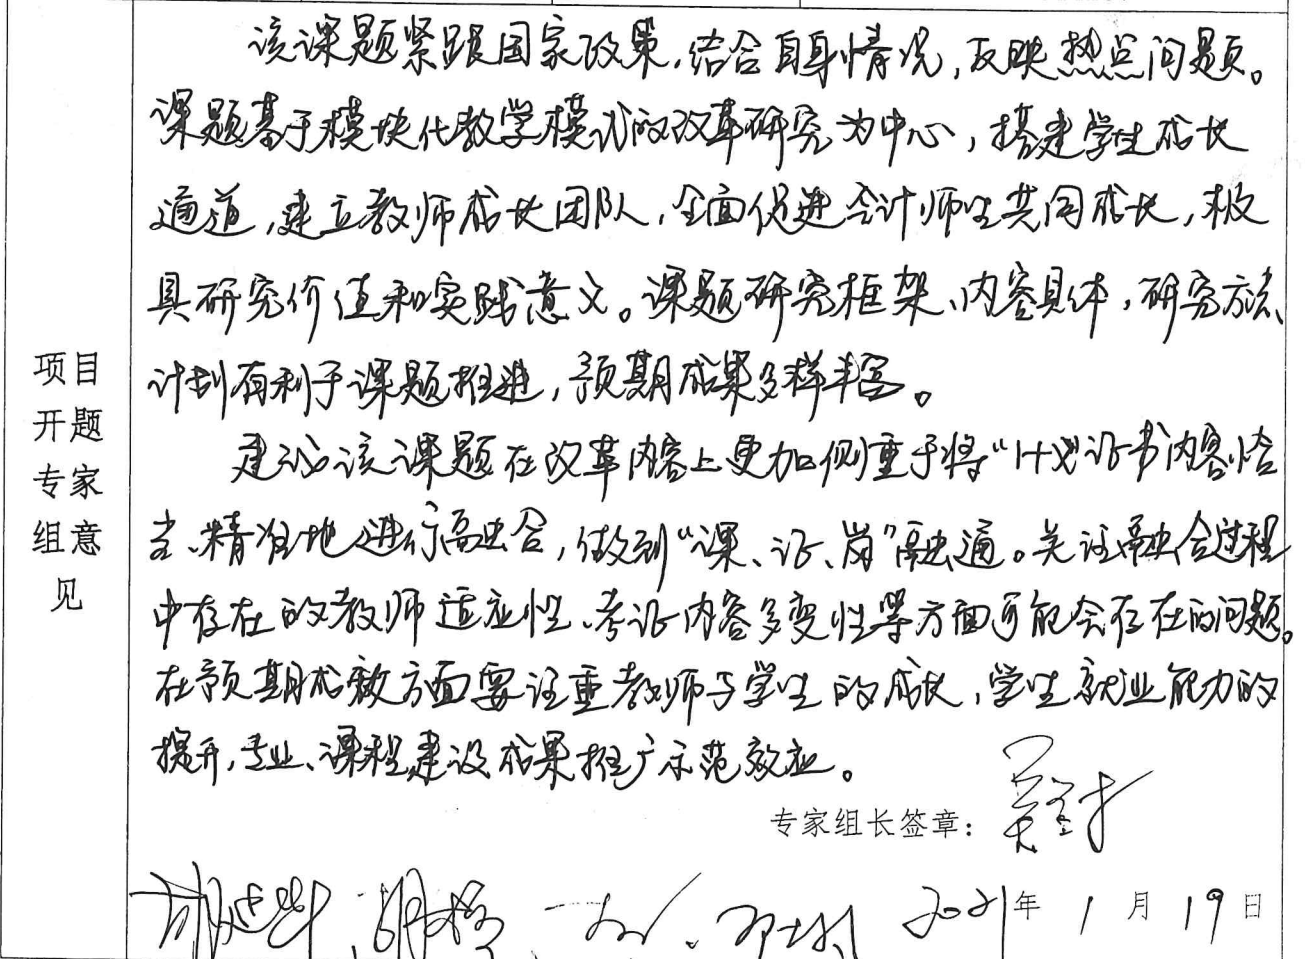 项目
开题
专家
组意
见
该课题紧跟国家政策,结合自身情况,反映热点问题。
课题基于模块化教学模式的改革研究为中心,搭建学生成长
通道,建立教师成长团队,全面促进会计师生共同成长,极
具研究价值和实践意义。课题研究框架、内容具体,研究方法、
计划有利于课题推进,预期成果多样丰富。
建议该课题在改革内容上更加侧重于将“1+X”证书内容恰
当、精准地进行融合,做到“课、证、岗”融通。关注融合过程
中存在的教师适应性、考证内容多变性等方面可能会存在的问题。
在预期成效方面要注重教师与学生的成长,学生就业能力的
提升,专业、课程建设成果推广示范效应。
专家组长签章:
2021年1月19日